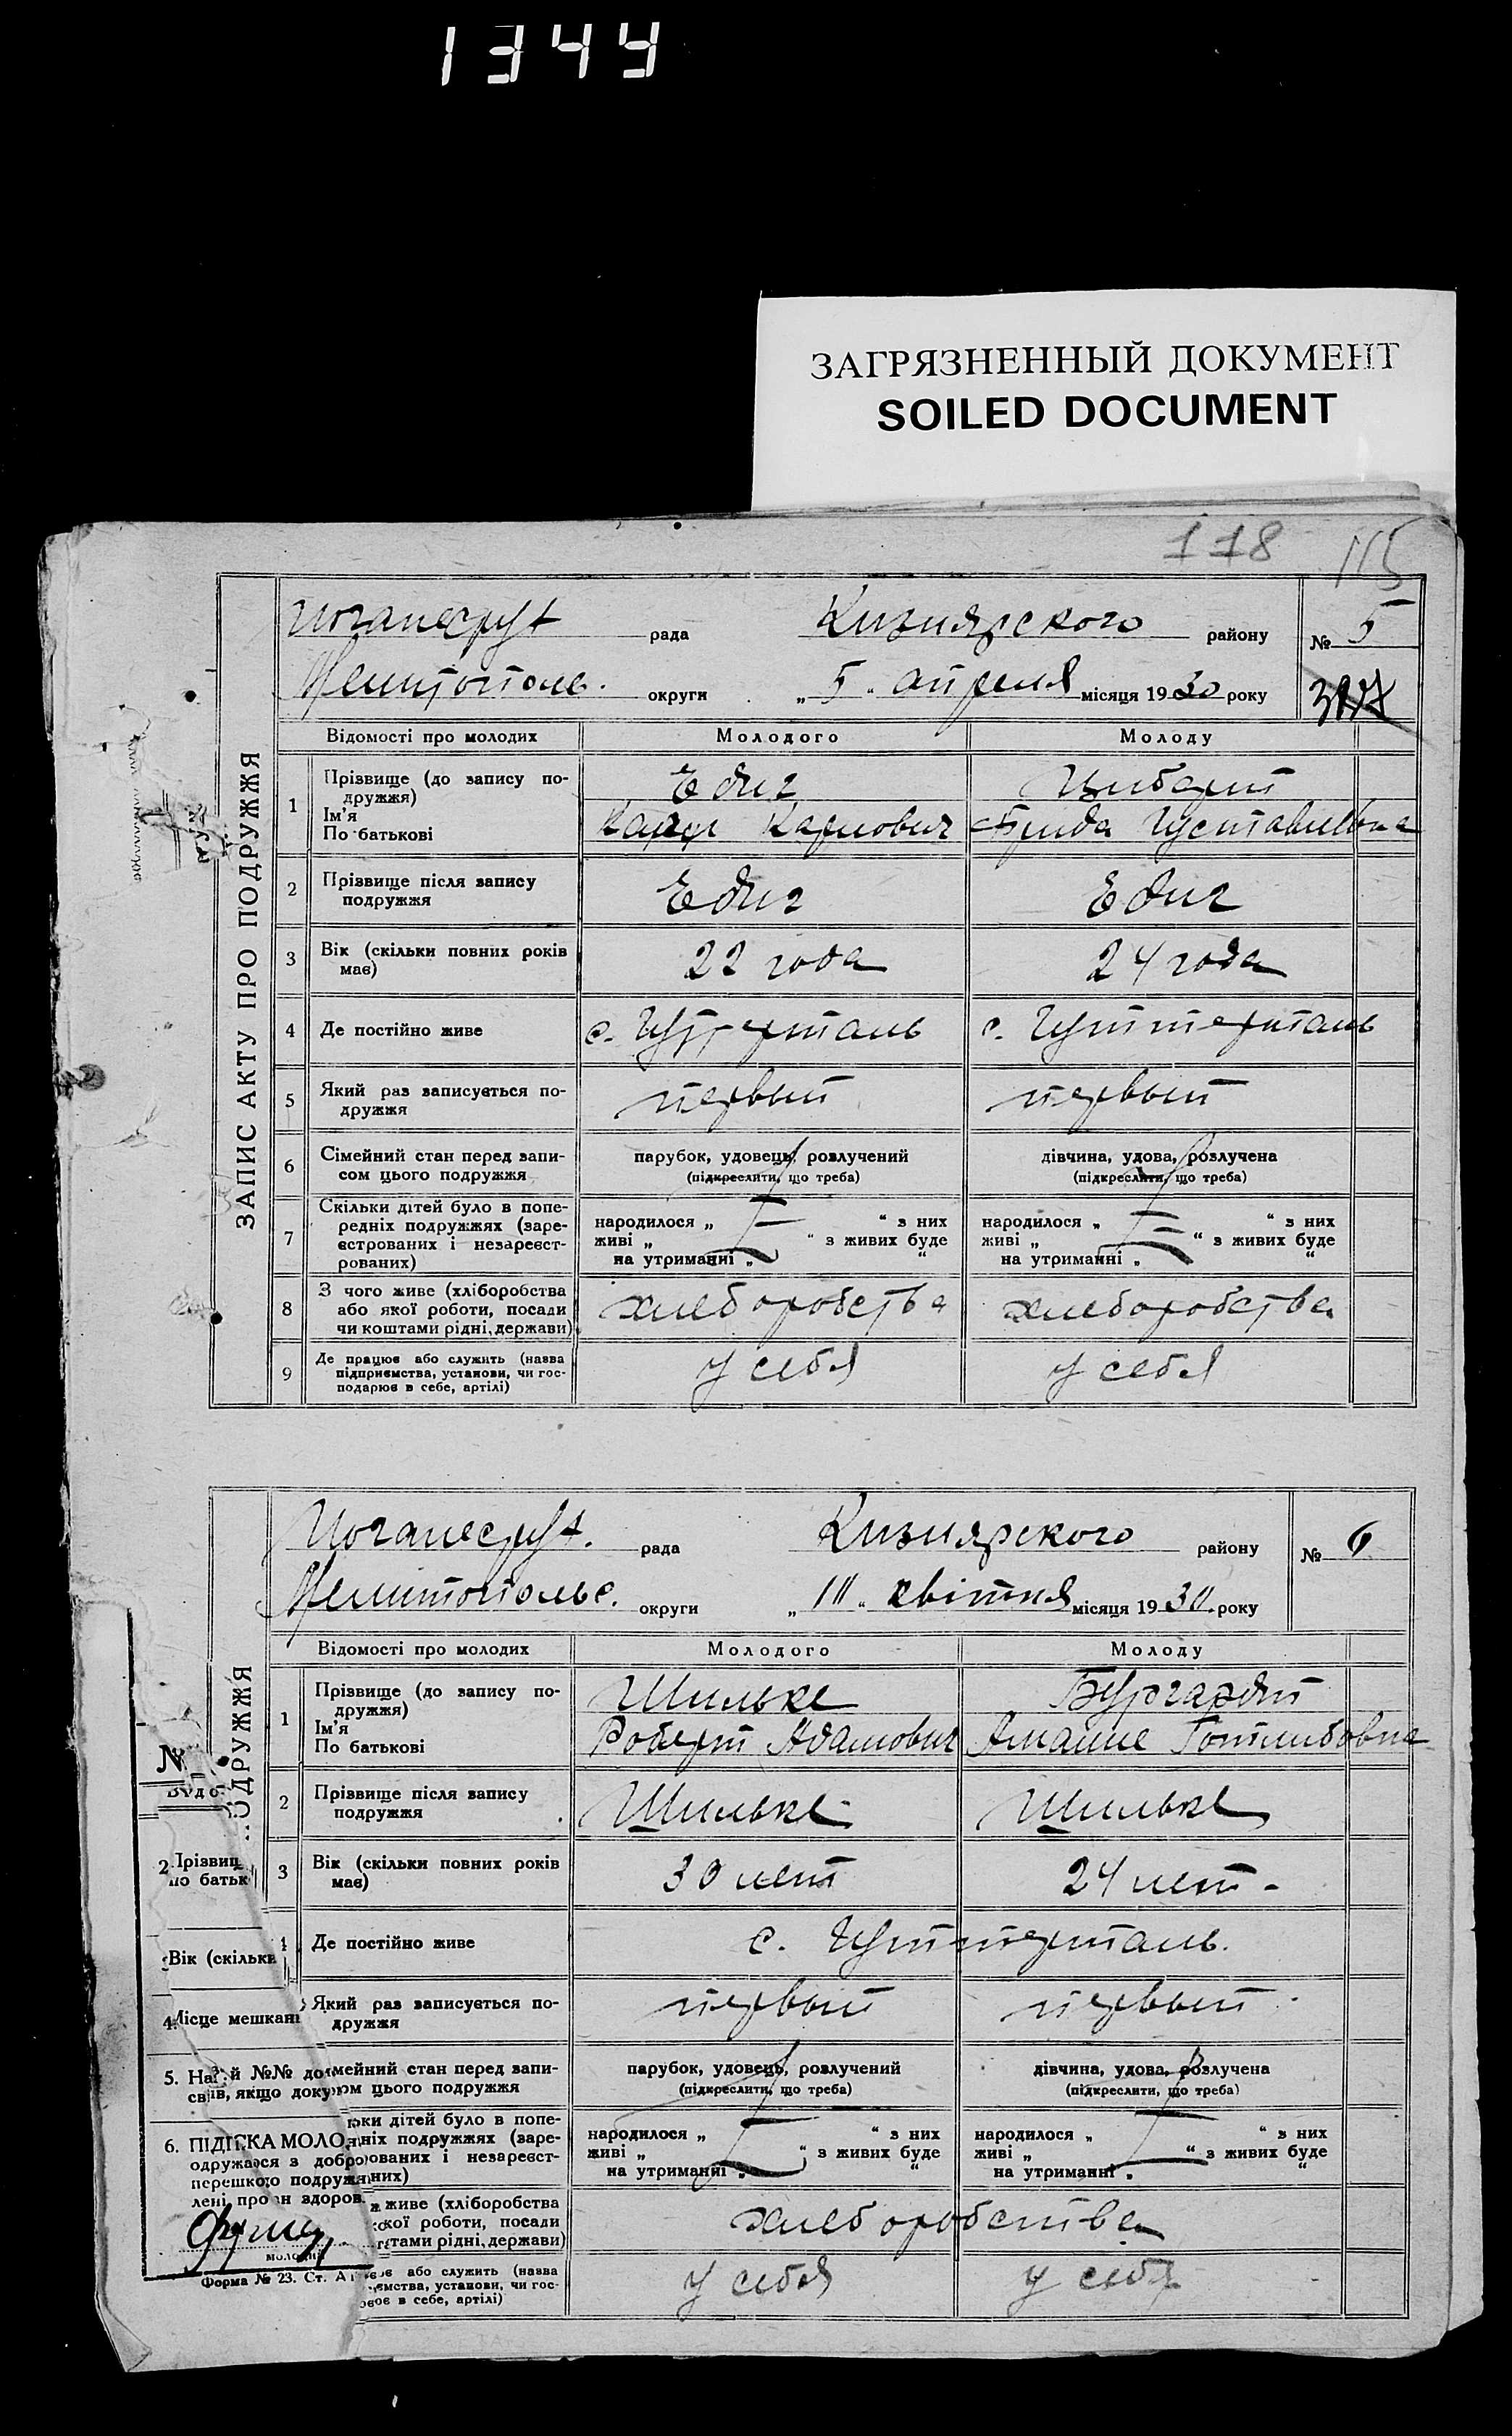 1344
ЗАГРЯЗНЕННЫЙ ДОКУМЕНТ
SOILED DOCUMENT
118 115
ЗАПИС АКТУ ПРО ПОДРУЖЖЯ
Иоганесрут рада Кизиярского району № 5
Мелитополь. округи „ 5 " апреля місяця 1930 року
Відомості про молодих Молодого Молоду
1 Прізвище (до запису по-
дружжя)
Ім'я
По батькові
Едиг
Карл Карлович
Цибарт
Густавльевна
2 Прізвище після запису
подружжя
Едиг Едиг
3 Вік (скільки повних років
має)
22 года 24 года
4 Де постійно живе с. Гуттерталь с. Гуттерталь
5 Який раз записується по-
дружжя
первый первый
6 Сімейний стан перед запи-
сом цього подружжя
парубок, удовець, розлучений
(підкреслити, що треба)
дівчина, удова, розлучена
(підкреслити, що треба)
7 Скільки дітей було в попе-
редніх подружжях (заре-
єстрованих і незареєст-
рованих)
народилося „ " з них
живі „ " з живих буде
на утриманні „ "
народилося „ " з них
живі „ " з живих буде
на утриманні „ "
8 З чого живе (хліборобства
або якої роботи, посади
чи коштами рідні, держави)
хлеборобства хлеборобства
9 Де працює або служить (назва
підприємства, установи, чи гос-
подарює в себе, артілі)
у себя у себя
Иоганесрут. рада Кизиярского району № 6
Мелитопольс. округи „ 11 " квітня місяця 1930 року
Відомості про молодих Молодого Молоду
ОДРУЖЖЯ
1 Прізвище (до запису по-
дружжя)
Ім'я
По батькові
Шильке
Роберт Адамович
Бургардт
Амалие Готлибовна
2 Прізвище після запису
подружжя
Шильке Шильке
3 Вік (скільки повних років
має)
30 лет 24 лет -
4 Де постійно живе с. Гуттерталь.
Який раз записується по-
дружжя
первый первый
мейний стан перед запи-
ом цього подружжя
парубок, удовець, розлучений
(підкреслити, що треба)
дівчина, удова, розлучена
(підкреслити, що треба)
ки дітей було в попе-
ніх подружжях (заре-
ованих і незареєст-
них)
народилося „ " з них
живі „ " з живих буде
на утриманні „ "
народилося „ " з них
живі „ " з живих буде
на утриманні „ "
живе (хліборобства
кої роботи, посади
тами рідні, держави)
хлеборобства
або служить (назва
ємства, установи, чи гос-
ює в себе, артілі)
у себя у себя
№
2. Прізвищ
по батьк
Вік (скільки
4. Місце мешкан
5. На й №№ до
св ів, якщо доку
6. ПІДПИСКА МОЛО
одружаюся з добро
перешкодо подруж
лені про ан здоров
Форма № 23. Ст.